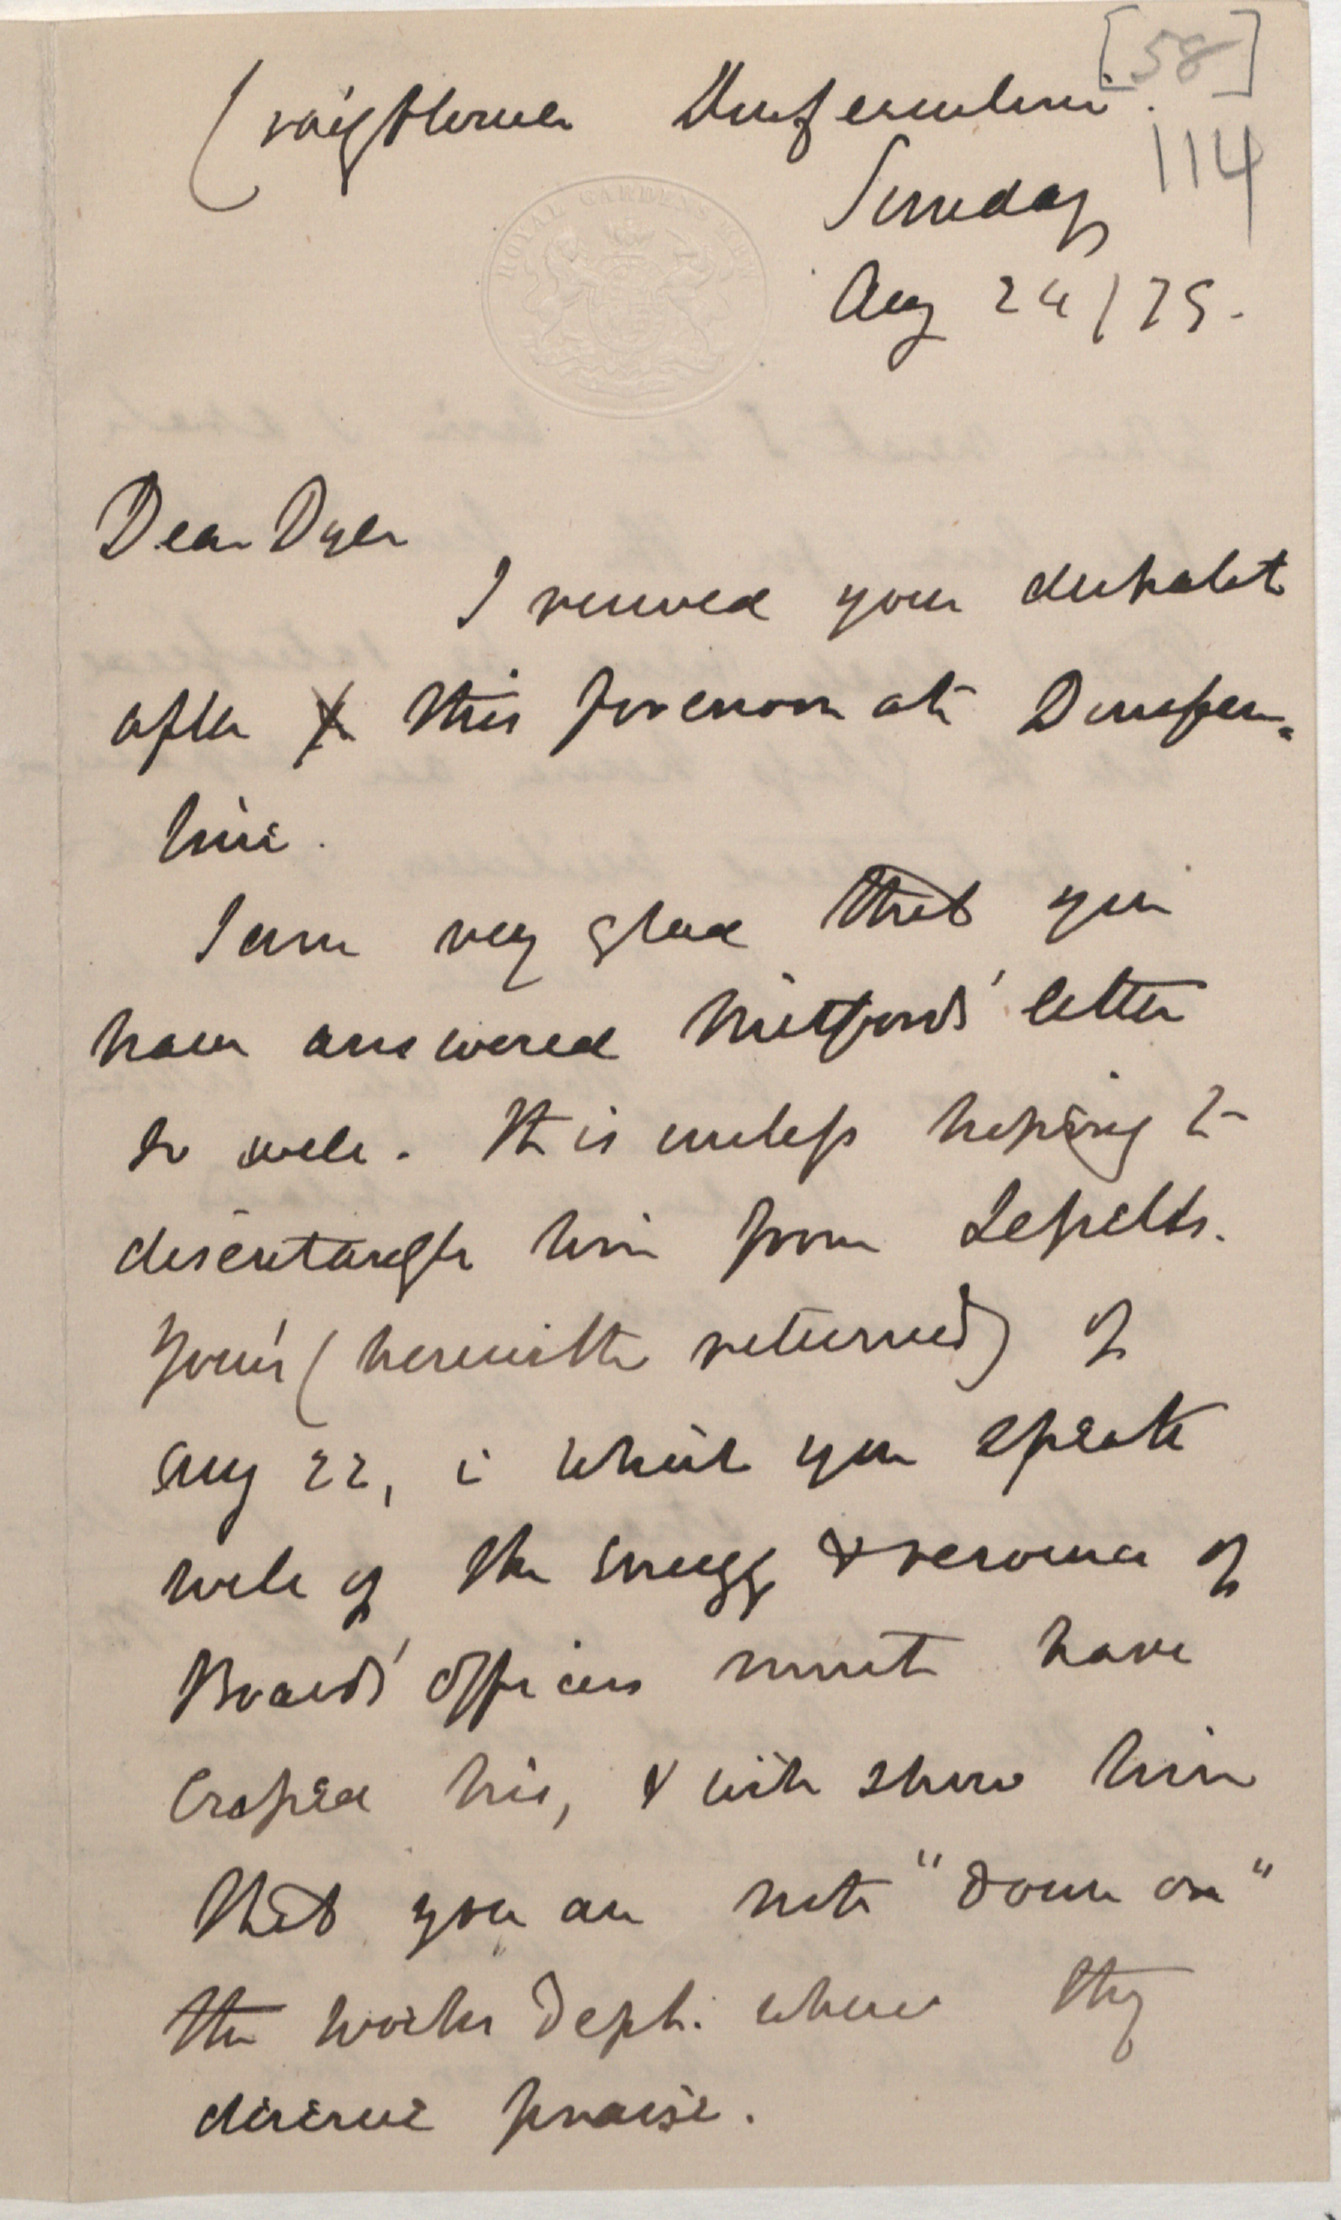 [58]
Craigflower Dunfermline.
114
Sunday
Aug 24/79.
ROYAL GARDENS KEW
Dear Dyer
I received your despatch
after this forenoon at Dunferm-
line.
I am very glad that you
have answered Mitfords' letter
so well. It is useless hoping to
disentangle him from
Yours (herewith returned) of
Aug 22, in which you speak
well of the energy & resource of
Board's officers must have
crossed his, & will show him
that you are not "down on"
the works Dept. where they
deserve praise.